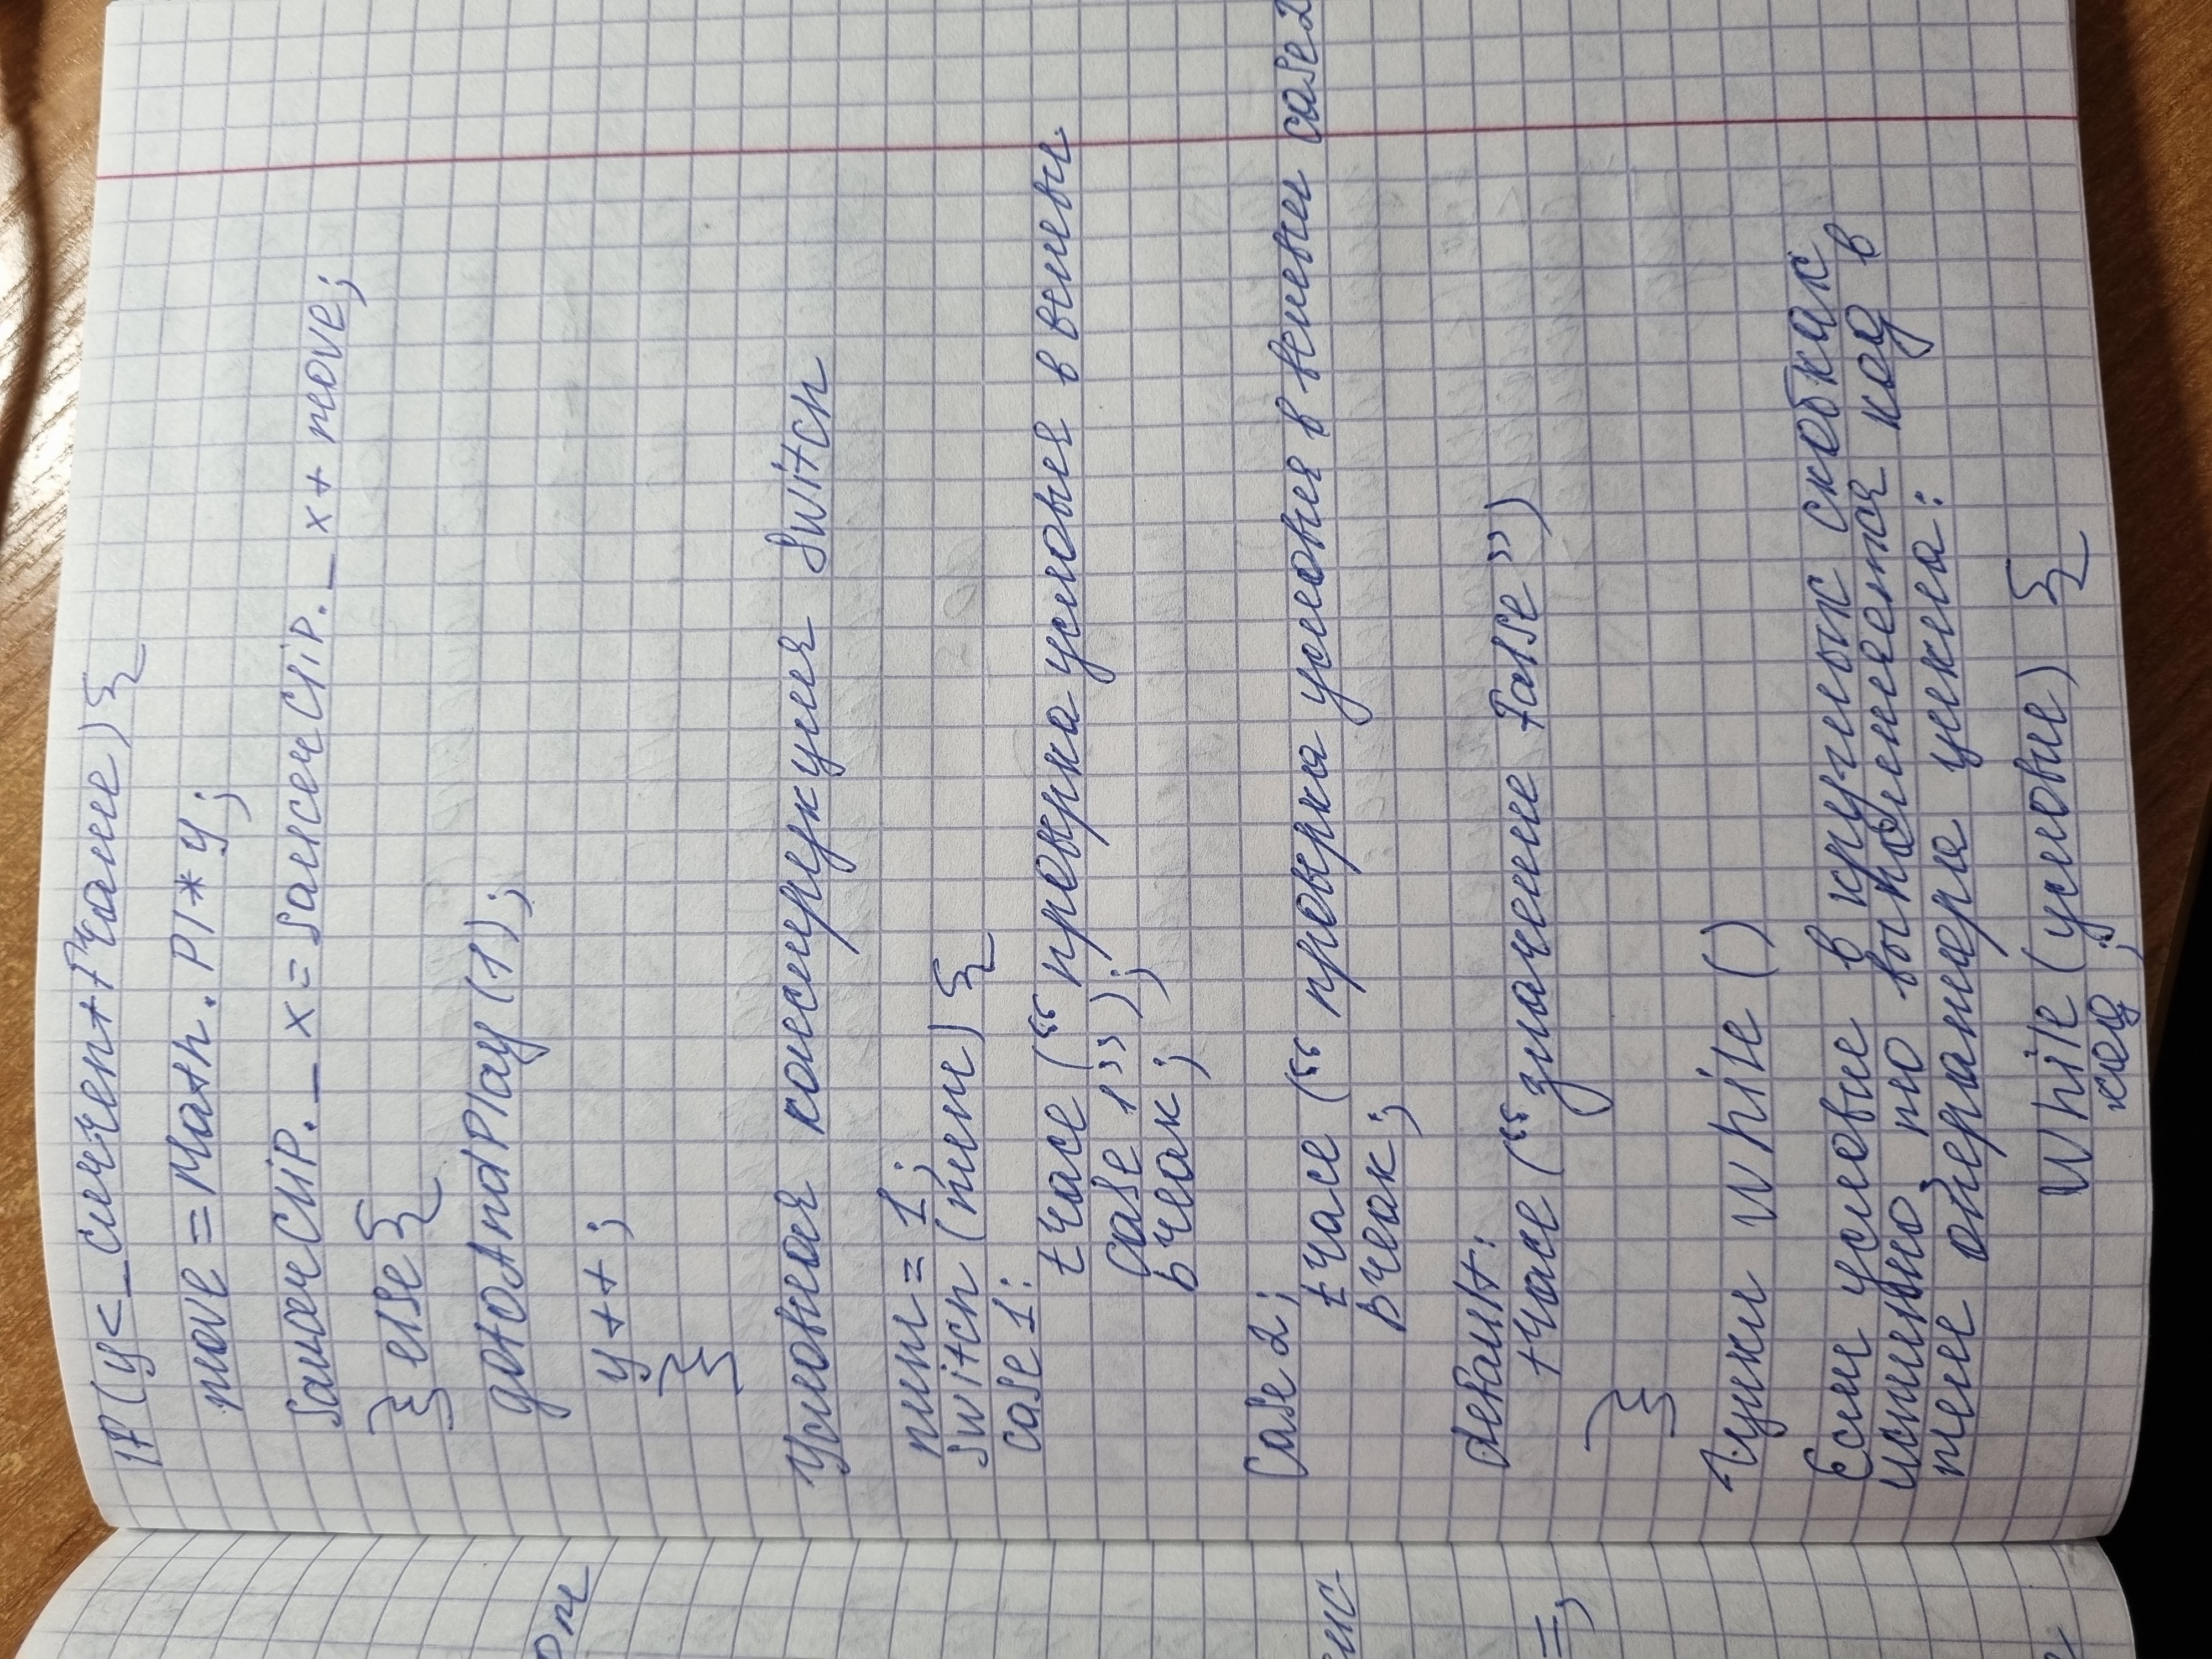 if (y<_currentFrame) {
move = Math. PI * y;
saucerClip. _ x = saucerClip. _ x + move;
} else {
gotoAndPlay (1);
y++;
}
Условная конструкция Switch
num = 1;
switch (num) {
case 1:
trace (“ проверка условия в ветви
case 1”);
break;
Case 2;
trace (“ проверка условия в ветви case 2
break;
default:
trace (“ значение False”)
}
Цикл While ()
Если условие в круглых скобках
истинно, то выполняется код в
теле оператора цикла:
While (условие) {
код ;
ис-
=,